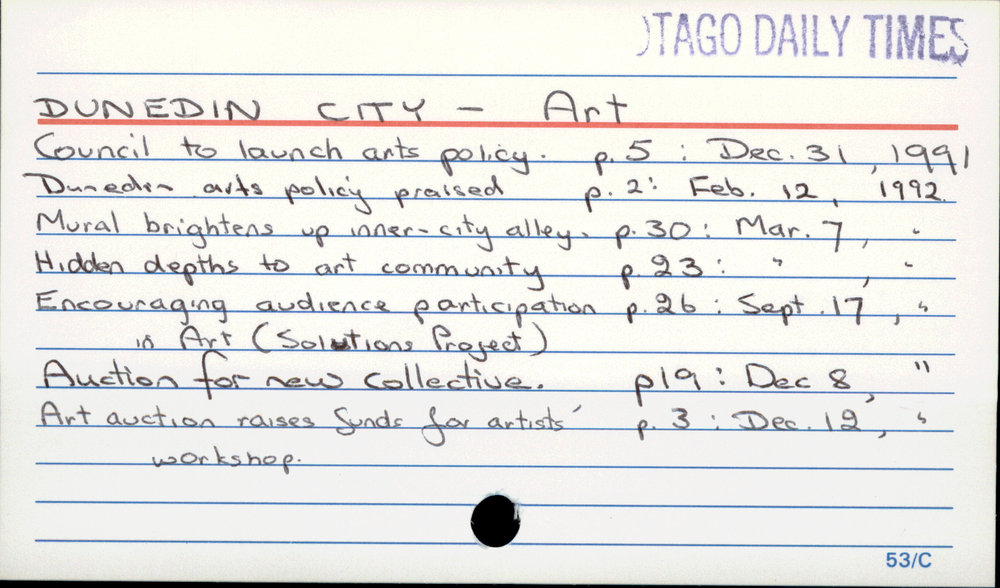 OTAGO DAILY TIMES
DUNEDIN CITY - Art
Council to launch arts policy. p. 5 : Dec. 31, 1991
Dunedin arts policy praised p. 2: Feb. 12, 1992.
Mural brightens up inner-city alley. p. 30: Mar. 7, "
Hidden depths to art community p. 23: " , "
Encouraging audience participation p. 26: Sept. 17, "
in Art (Solutions Project)
Auction for new collective. p19: Dec 8, "
Art auction raises funds for artists' p. 3: Dec. 12, "
workshop.
53/C